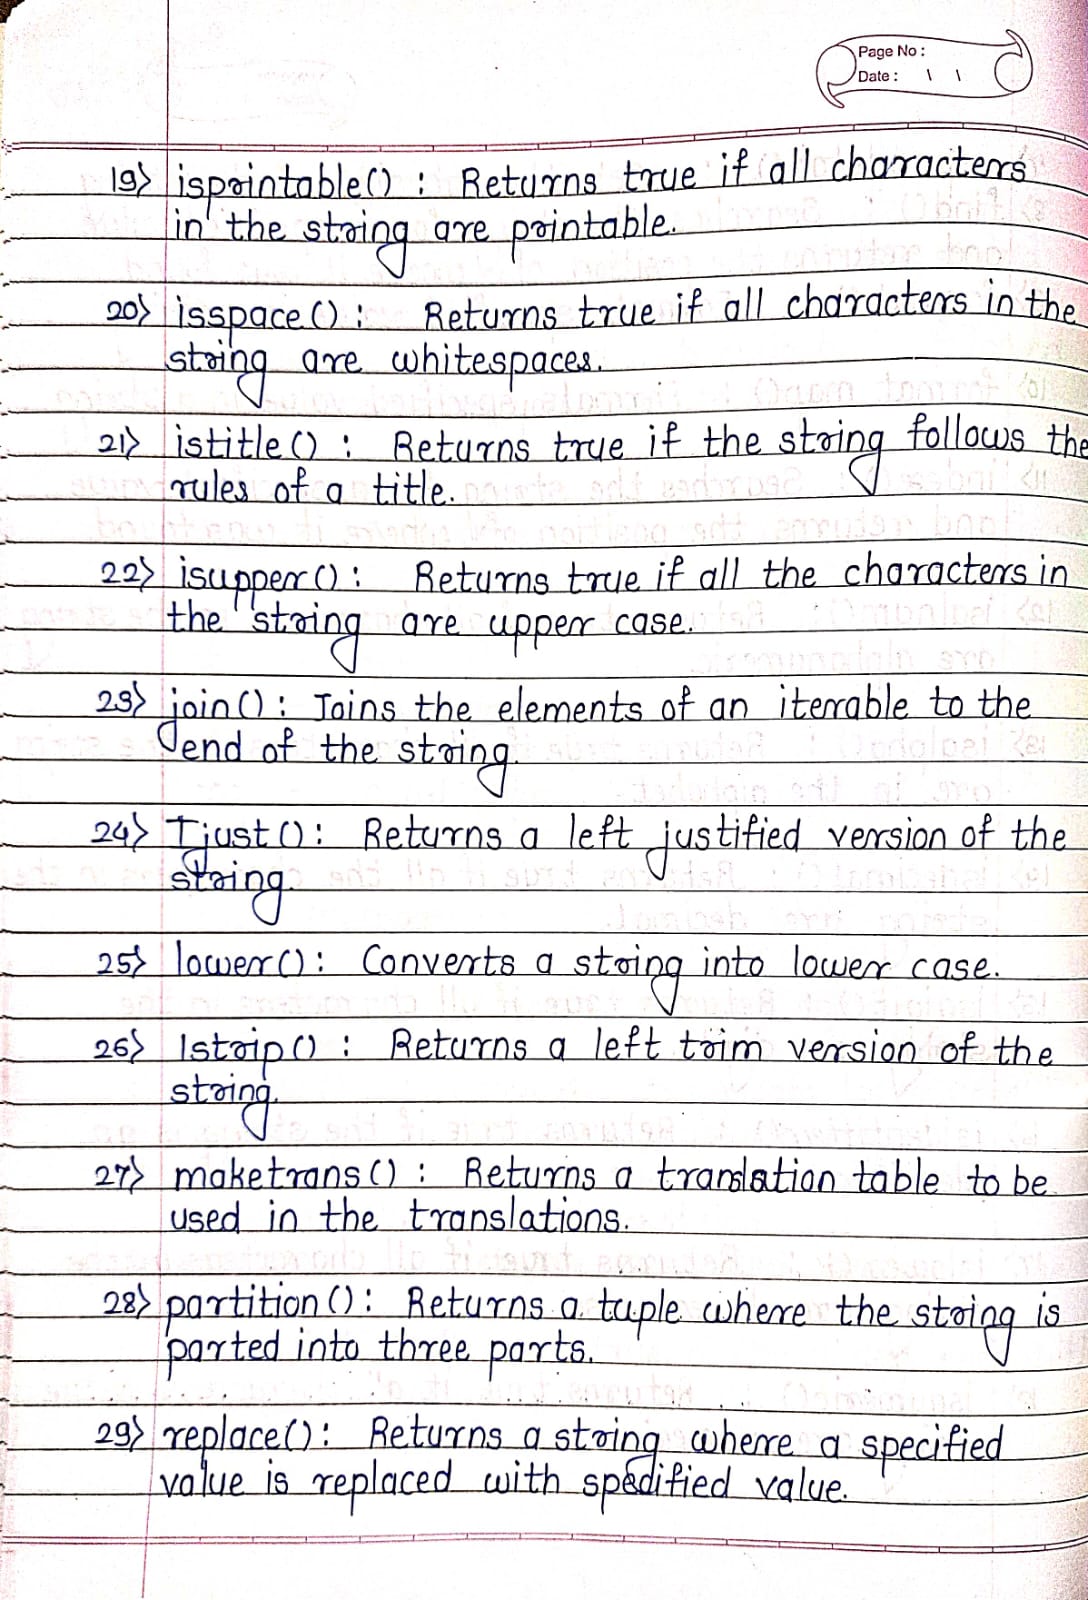 Page No :
Date : \ \
19> isprintable() : Returns true if all characters
in the string are printable.
20> isspace() : Returns true if all characters in the
string are whitespaces.
21> istitle() : Returns true if the string follows the
rules of a title.
22> isupper() : Returns true if all the characters in
the string are upper case.
23> join() : Joins the elements of an iterable to the
end of the string.
24> Tjust() : Returns a left justified version of the
string.
25> lower() : Converts a string into lower case.
26> lstrip() : Returns a left trim version of the
string.
27> maketrans() : Returns a translation table to be
used in the translations.
28> partition() : Returns a tuple where the string is
parted into three parts.
29> replace() : Returns a string where a specified
value is replaced with spedified value.